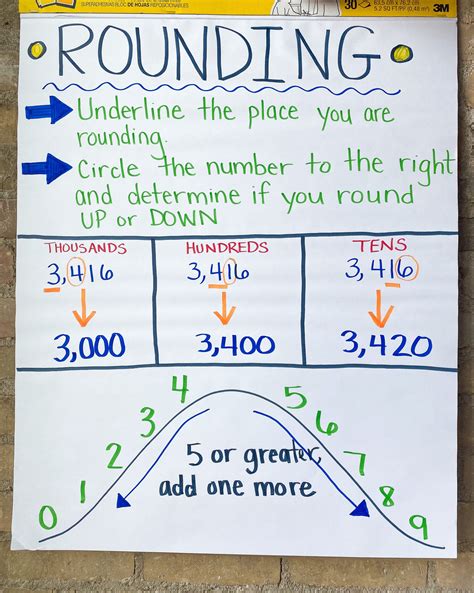 30
3M
ROUNDING
Underline the place you are
rounding.
Circle the number to the right
and determine if you round
UP or DOWN
THOUSANDS HUNDREDS TENS
3,416 3,416 3,416
3,000 3,400 3,420
4 5
3 6
2 7
1 8
0 9
5 or greater,
add one more